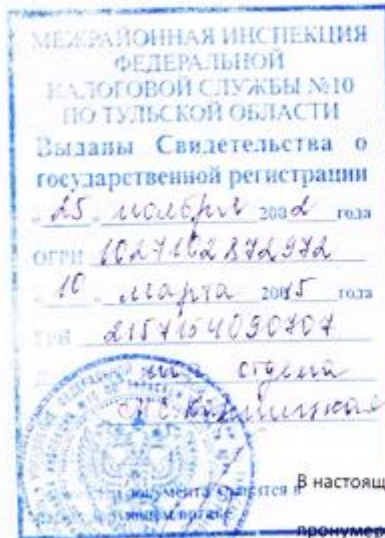 МЕЖРАЙОННАЯ ИНСПЕКЦИЯ
ФЕДЕРАЛЬНОЙ
НАЛОГОВОЙ СЛУЖБЫ №10
ПО ТУЛЬСКОЙ ОБЛАСТИ
Выданы Свидетельства о
государственной регистрации
« 25 » ноября 2002 года
ОГРН 1027102872972
« 10 » марта 2015 года
ГРН 2157154090707
отдела
документа хранится в
органе
В настоящ
пронумер